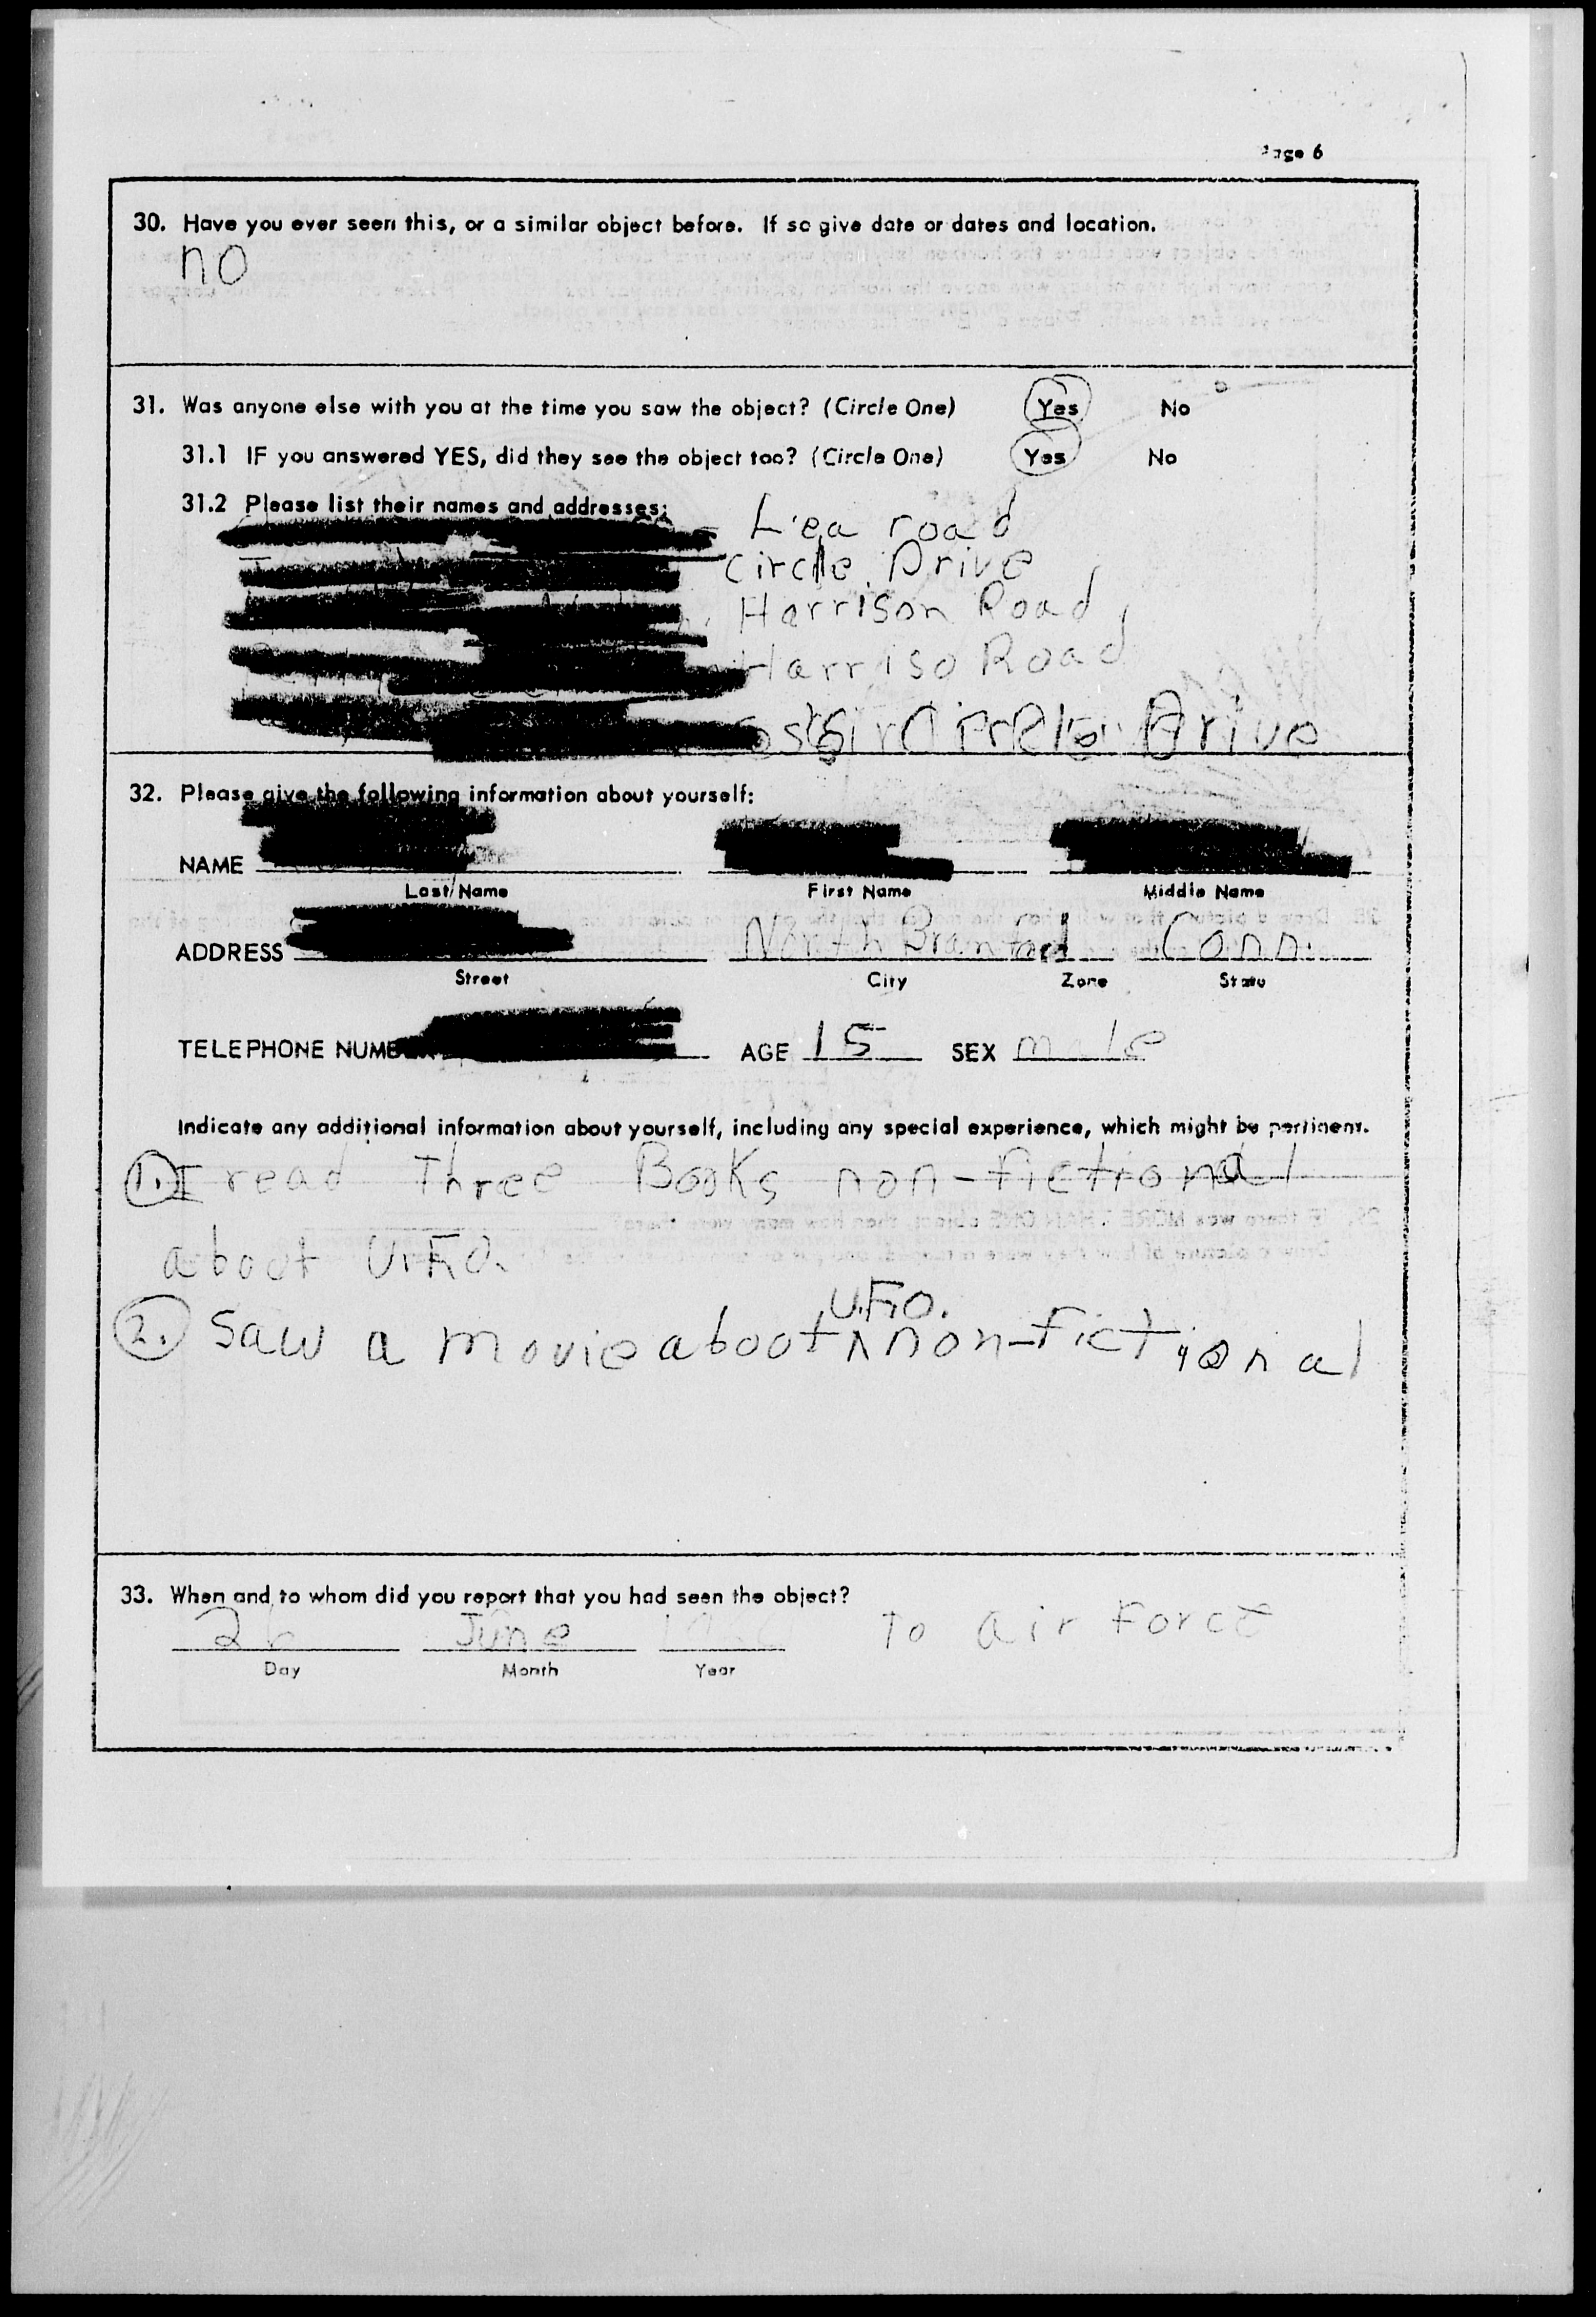 Page 6
30. Have you ever seen this, or a similar object before. If so give date or dates and location.
no
31. Was anyone else with you at the time you saw the object? (Circle One) Yes No
31.1 IF you answered YES, did they see the object too? (Circle One) Yes No
31.2 Please list their names and addresses:
Lea road
Circle Drive
Harrison Road
Harriso Road
Drive
32. Please give the following information about yourself:
NAME
Last Name First Name Middle Name
ADDRESS North Branford Conn.
Street City Zone State
TELEPHONE AGE 15 SEX male
Indicate any additional information about yourself, including any special experience, which might be pertinent.
1. I read Three Books non-fictional
about U.F.O.
U.F.O.
2. Saw a movie about ^ non-fictional
33. When and to whom did you report that you had seen the object?
26 June To air Force
Day Month Year